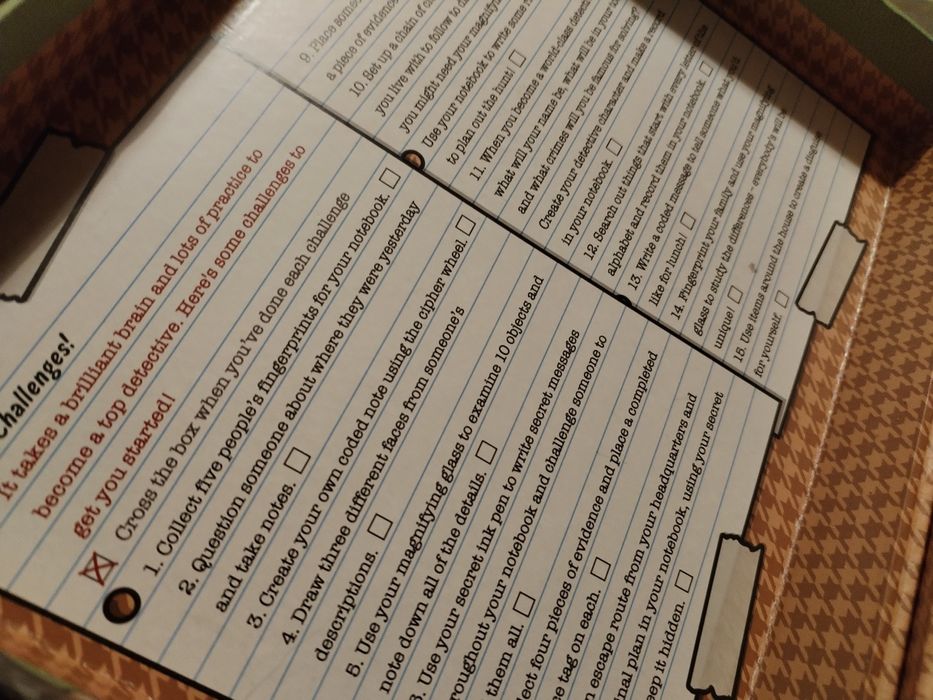 Challenges!
It takes a brilliant brain and lots of practice to
become a top detective. Here's some challenges to
get you started!
Cross the box when you've done each challenge
1. Collect five people's fingerprints for your notebook.
2. Question someone about where they were yesterday
and take notes.
3. Create your own coded note using the cipher wheel.
4. Draw three different faces from someone's
descriptions.
5. Use your magnifying glass to examine 10 objects and
note down all of the details.
6. Use your secret ink pen to write secret messages
throughout your notebook and challenge someone to
them all.
four pieces of evidence and place a completed
tag on each.
escape route from your headquarters and
plan in your notebook, using your secret
keep it hidden.
9. Place
a piece of evidence
10. Set up a chain of
you live with to follow to
you might need your magnifying
Use your notebook to write some
to plan out the hunt!
11. When you become a world-class
what will your name be, what will be in your
and what crimes will you be famous for solving?
Create your detective character and make a record
in your notebook.
12. Search out things that start with every letter of the
alphabet and record them in your notebook
13. Write a coded message to tell someone what you'd
like for lunch!
14. Fingerprint your family and use your magnifying
glass to study the differences - everybody's will be
unique!
15. Use items around the house to create a disguise
for yourself.